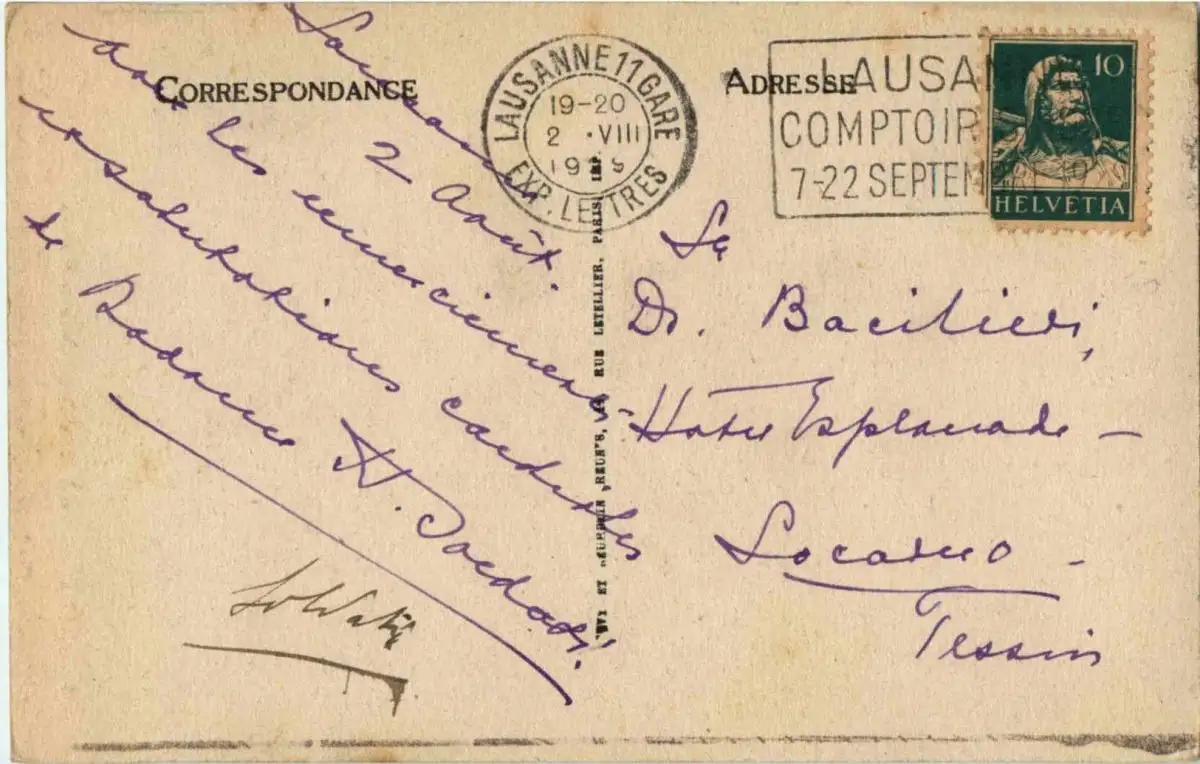 CORRESPONDANCE
ADRESSE
LAUSANNE 11 GARE
19-20
2 · VIII
EXP. LETTRES
LAUSAN
COMPTOIR
7-22 SEPTEM
10
HELVETIA
Lausanne
2 Août.
Avec les remerciements
et salutations cordiales
de
Madame A. Soldati.
Soldati
Dr. Bacilieri,
Hotel Esplanade —
Locarno -
Tessin
RUE LETELLIER, PARIS. IMP.